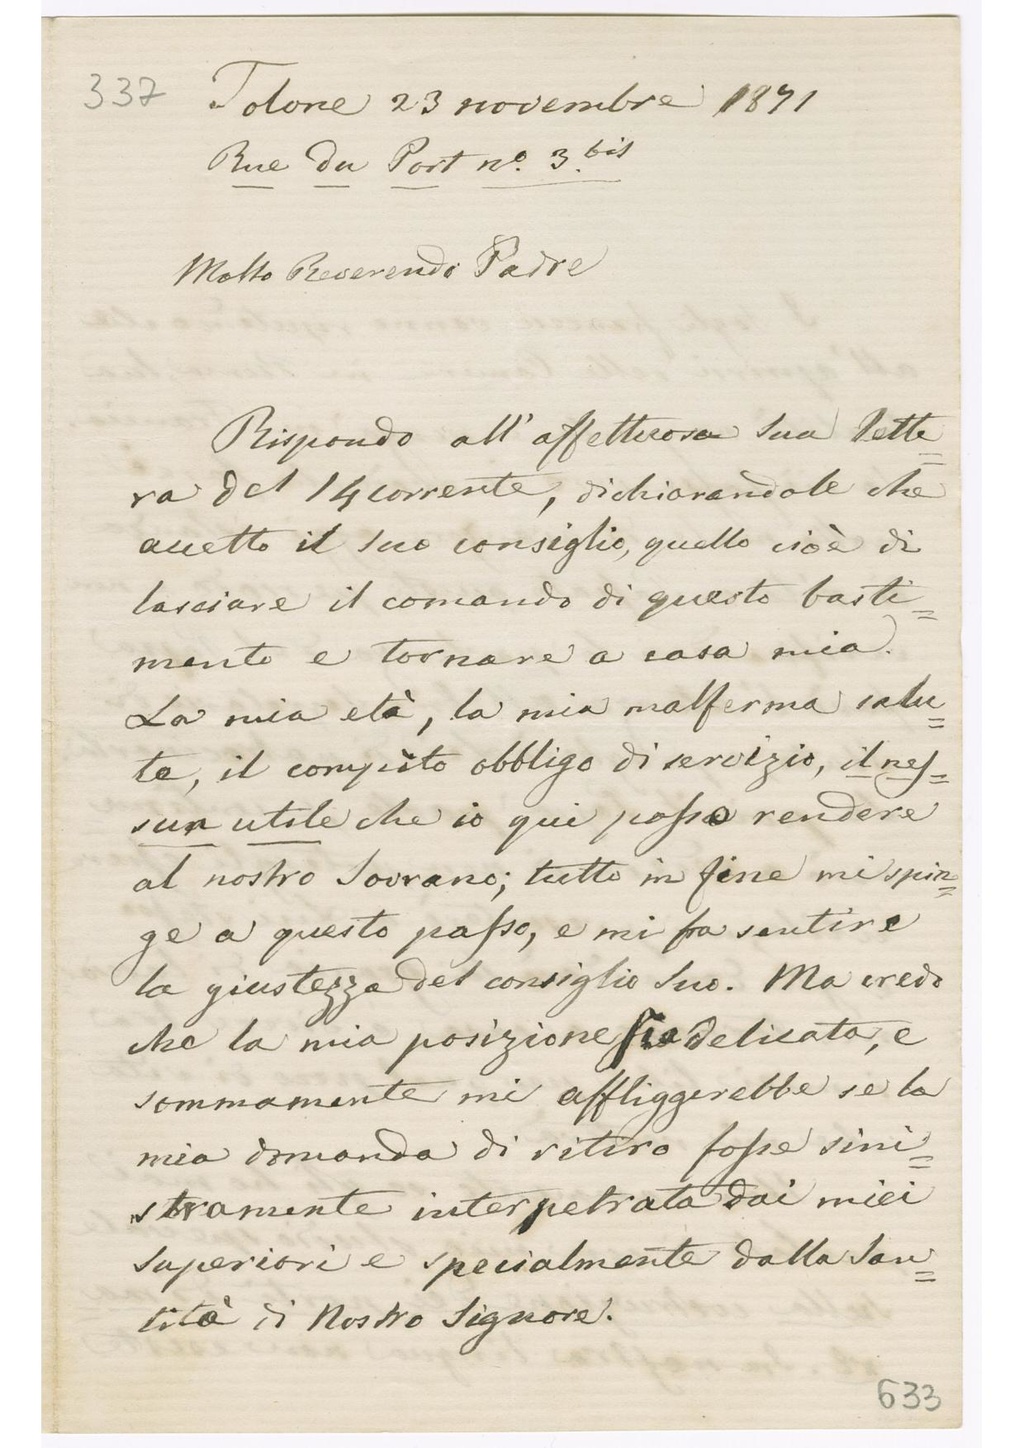 337
Tolone 23 novembre 1871
Rue du Port nº. 3.bis
Molto Reverendo Padre
Rispondo all'affettuosa Sua lette=
ra del 14 corrente, dichiarandole che
accetto il Suo consiglio, quello cioè di
lasciare il comando di questo basti=
mento e tornare a casa mia.
La mia età, la mia malferma salu=
te, il compito obbligo di servizio, il nes=
sun utile che io qui possa rendere
al nostro Sovrano; tutto in fine mi spin=
ge a questo passo, e mi fa sentire
la giustezza del consiglio Suo. Ma credo
che la mia posizione sia delicata, e
sommamente mi affliggerebbe se la
mia domanda di ritiro fosse sini=
stramente interpetrata dai miei
Superiori e specialmente dalla San=
tità di Nostro Signore.
633